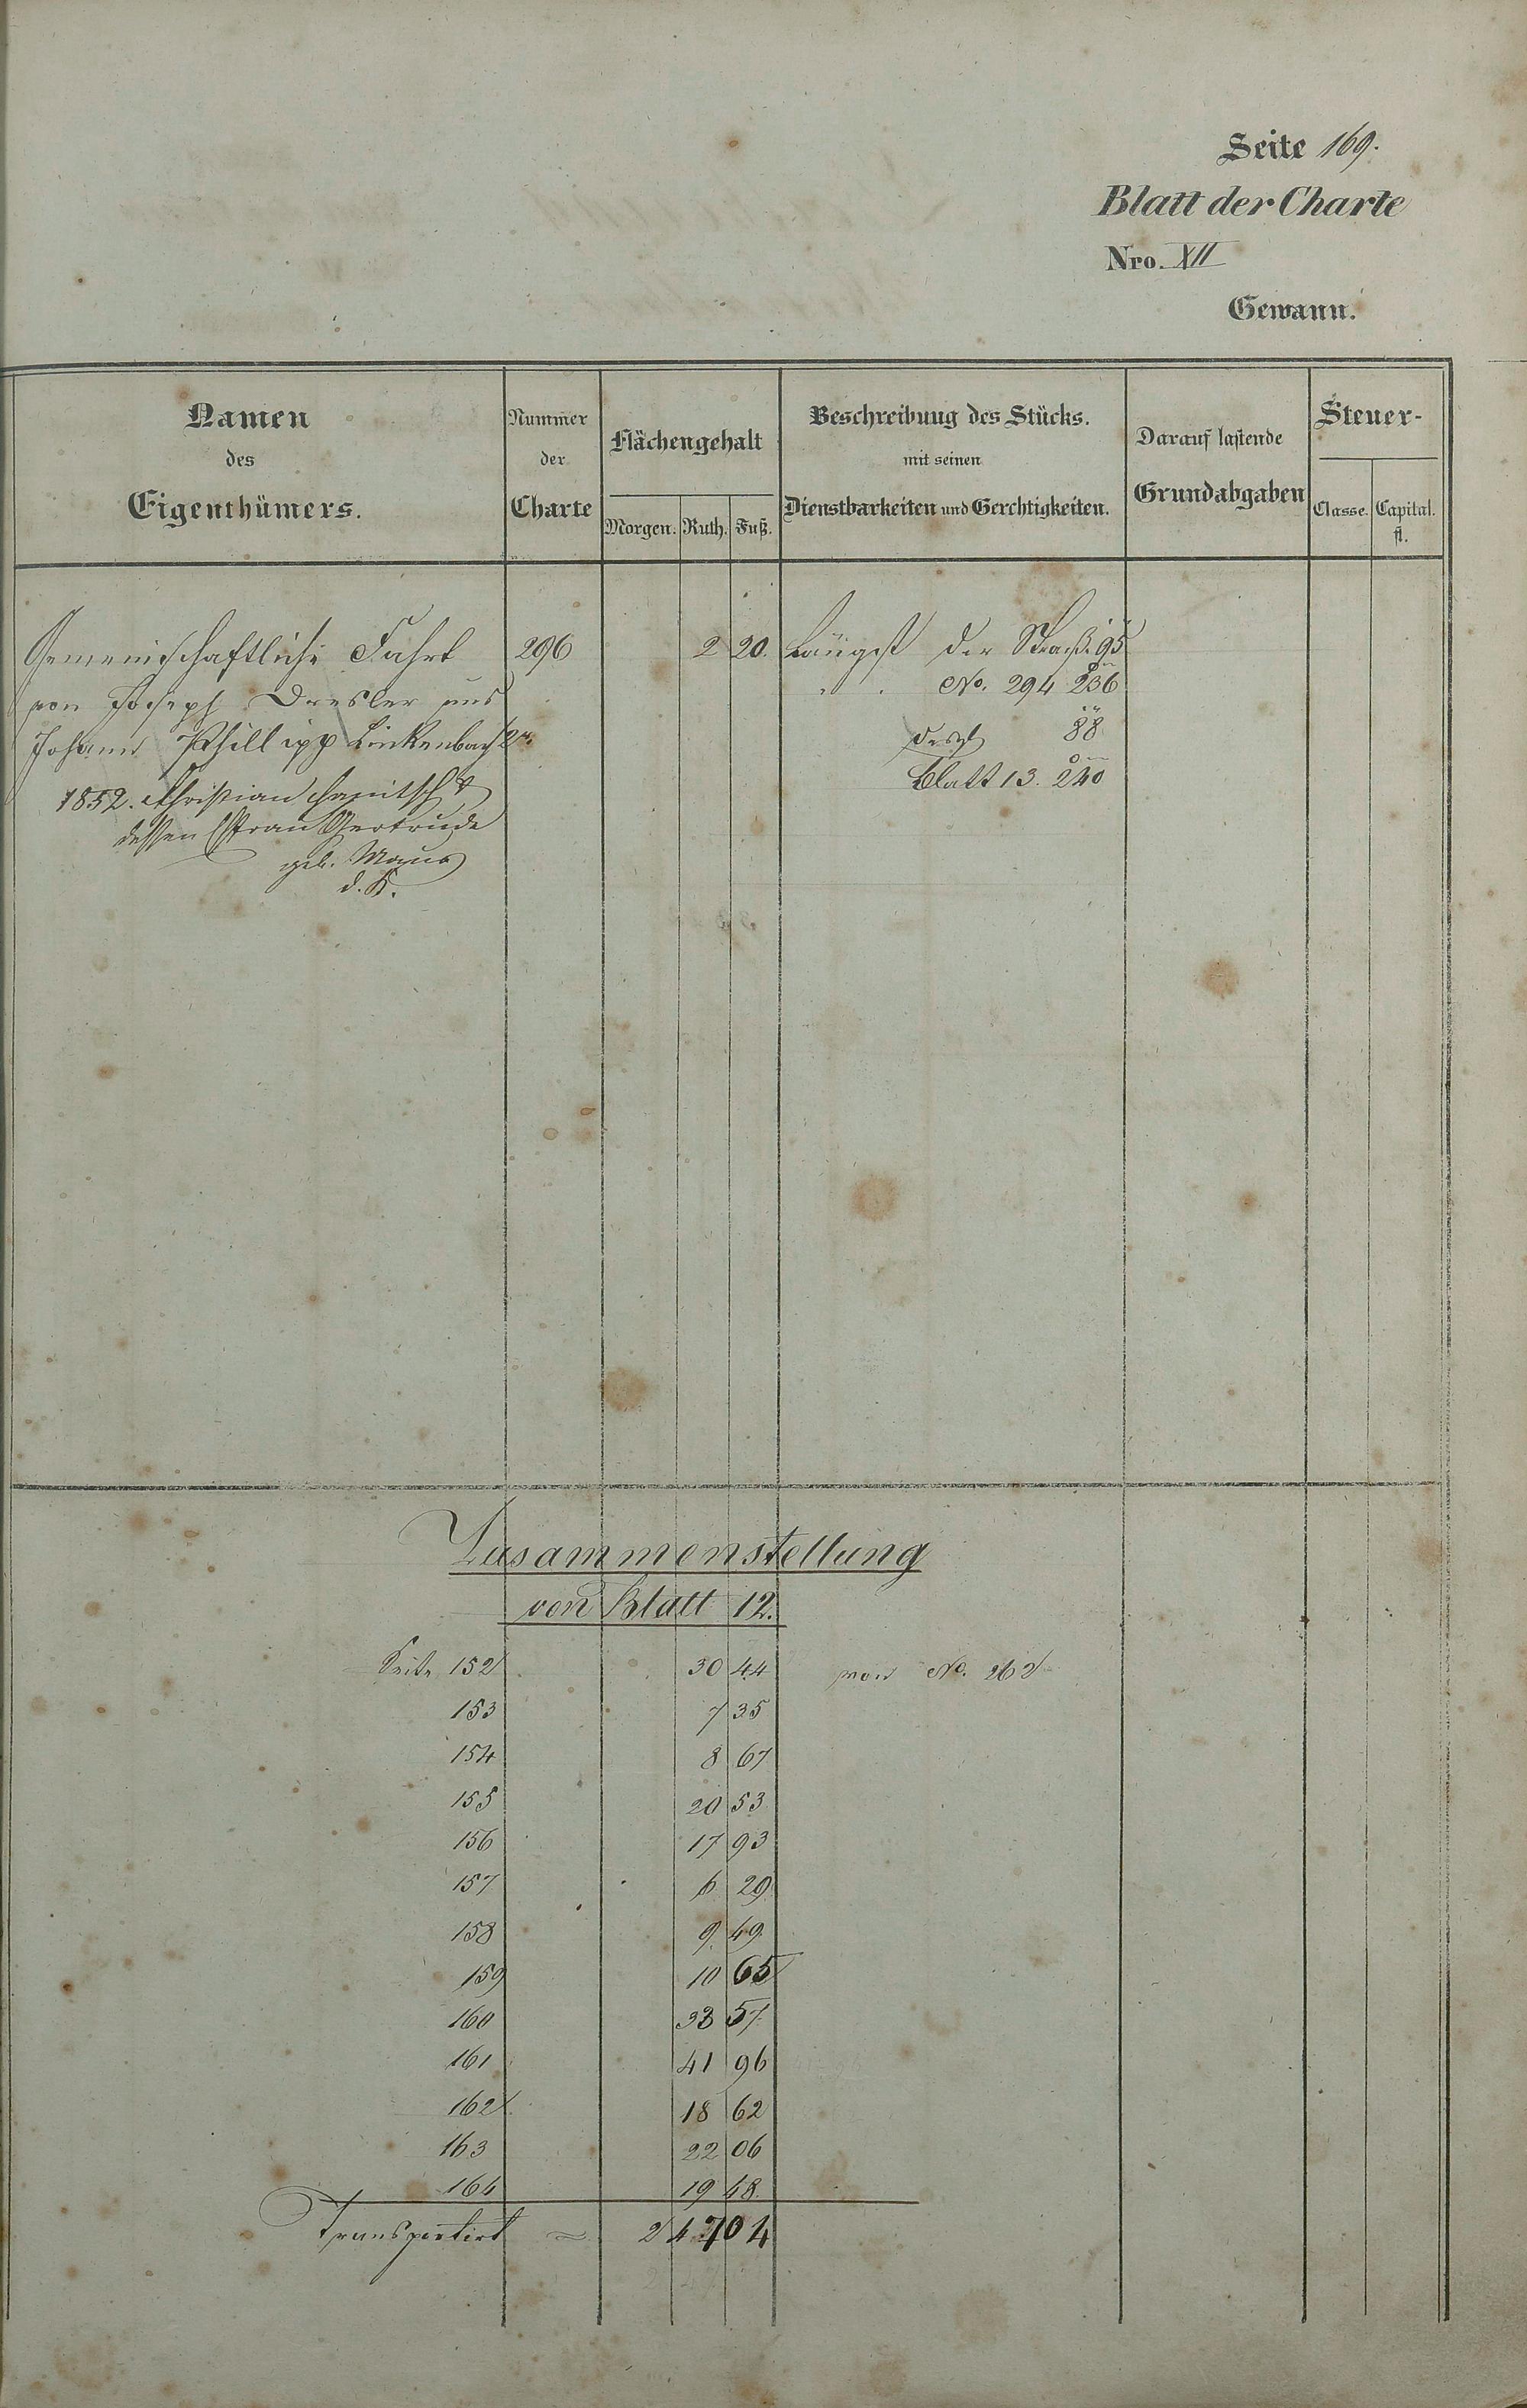 Seite 169.
Blatt der Charte
Nro. XII
Gewann.
Namen des Eigenthümers.
Nummer der Charte
Flächengehalt
Morgen. Ruth. Fuß.
Beschreibung des Stücks.
mit seinen
Dienstbarkeiten und Gerechtigkeiten.
Darauf lastende
Grundabgaben
Steuer-
Classe. Capital.
fl.
Gemeinschaftliche Fahrt 296 2 20. Längst der Straß. 95
von Joseph Dresler und " . No. 294 236
Johann Phillipp Linkenbach 2r. desgl 88
1852. Christian & Blatt 13. 240
dessen Ehfrau Gertrude
geb. Maus
d. K.
Zusammenstellung
von Blatt 12.
Seite 152 30 44 von No. 262
153 7 35
154 8 67
155 20 53
156 17 93
157 6 29
158 9 49
159 10 65
160 33 57
161 41 96
162 18 62
163 22 06
164 19 48
Transportirt = 2 47 04